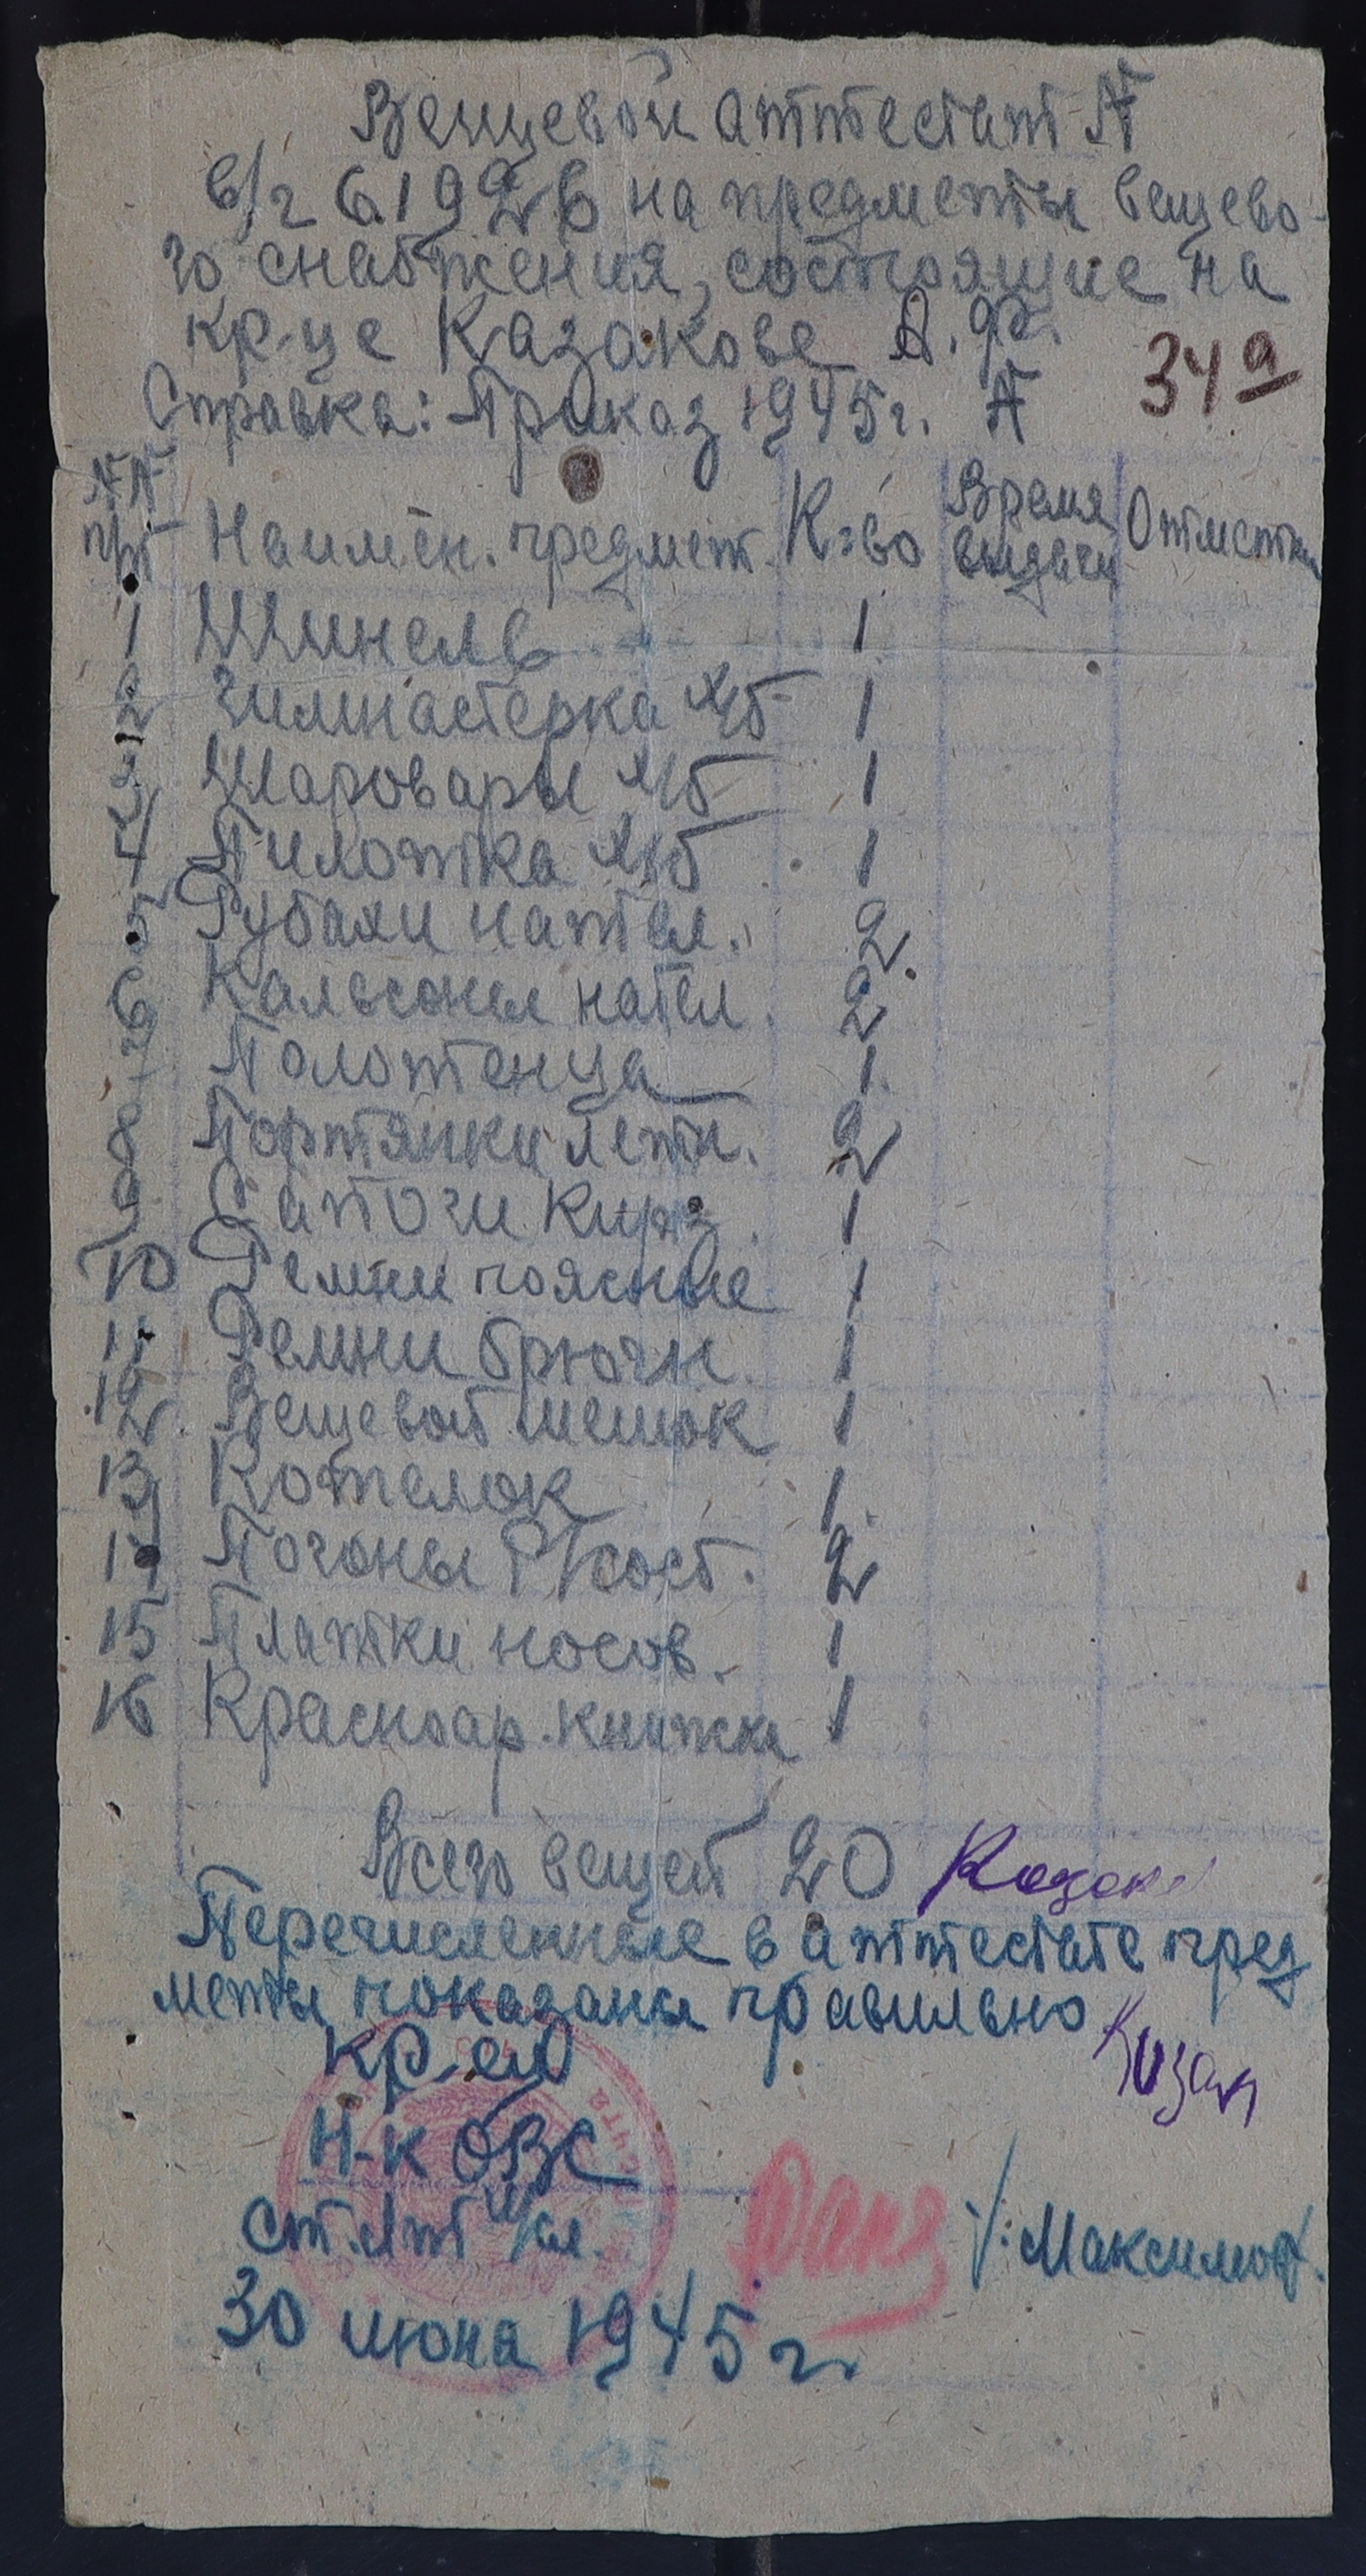 Вещевой аттестат №
в/ч 61926 на предметы вещево-
го снабжения, состоящие на
кр-це Казакове А. Ф.
34а
Справка: Приказ 1945г. №
№№ п/п Наимен. предмет. К-во Время выдачи Отметки
1 Шинель 1
2 Гимнастерка х/б 1
3 Шаровары х/б 1
4 Пилотка х/б 1
5 Рубахи нател. 2
6 Кальсоны нател. 2
Полотенца 1
8 Портянки летн. 2
9 Сапоги кирз. 1
10 Ремни поясные 1
11 Ремни брючн. 1
12 Вещевой мешок 1
13 Котелок 1
14 Погоны 2
15 Платки носов. 1
16 Красноар. книжка 1
Всего вещей 20
Перечисленные в аттестате пред
меты показаны правильно
кр-ец
Н-к ОВС
ст. л-т
/: Максимов.
30 июня 1945 г.